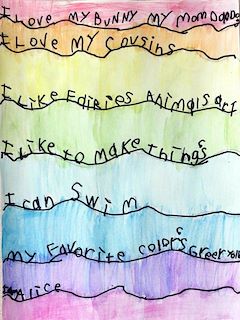 I Love My Bunny My Mom DaD
I Love My Cousins
I Like Fairies Animals art
I Like to make things
I can Swim
my Favorite colors Green
Alice